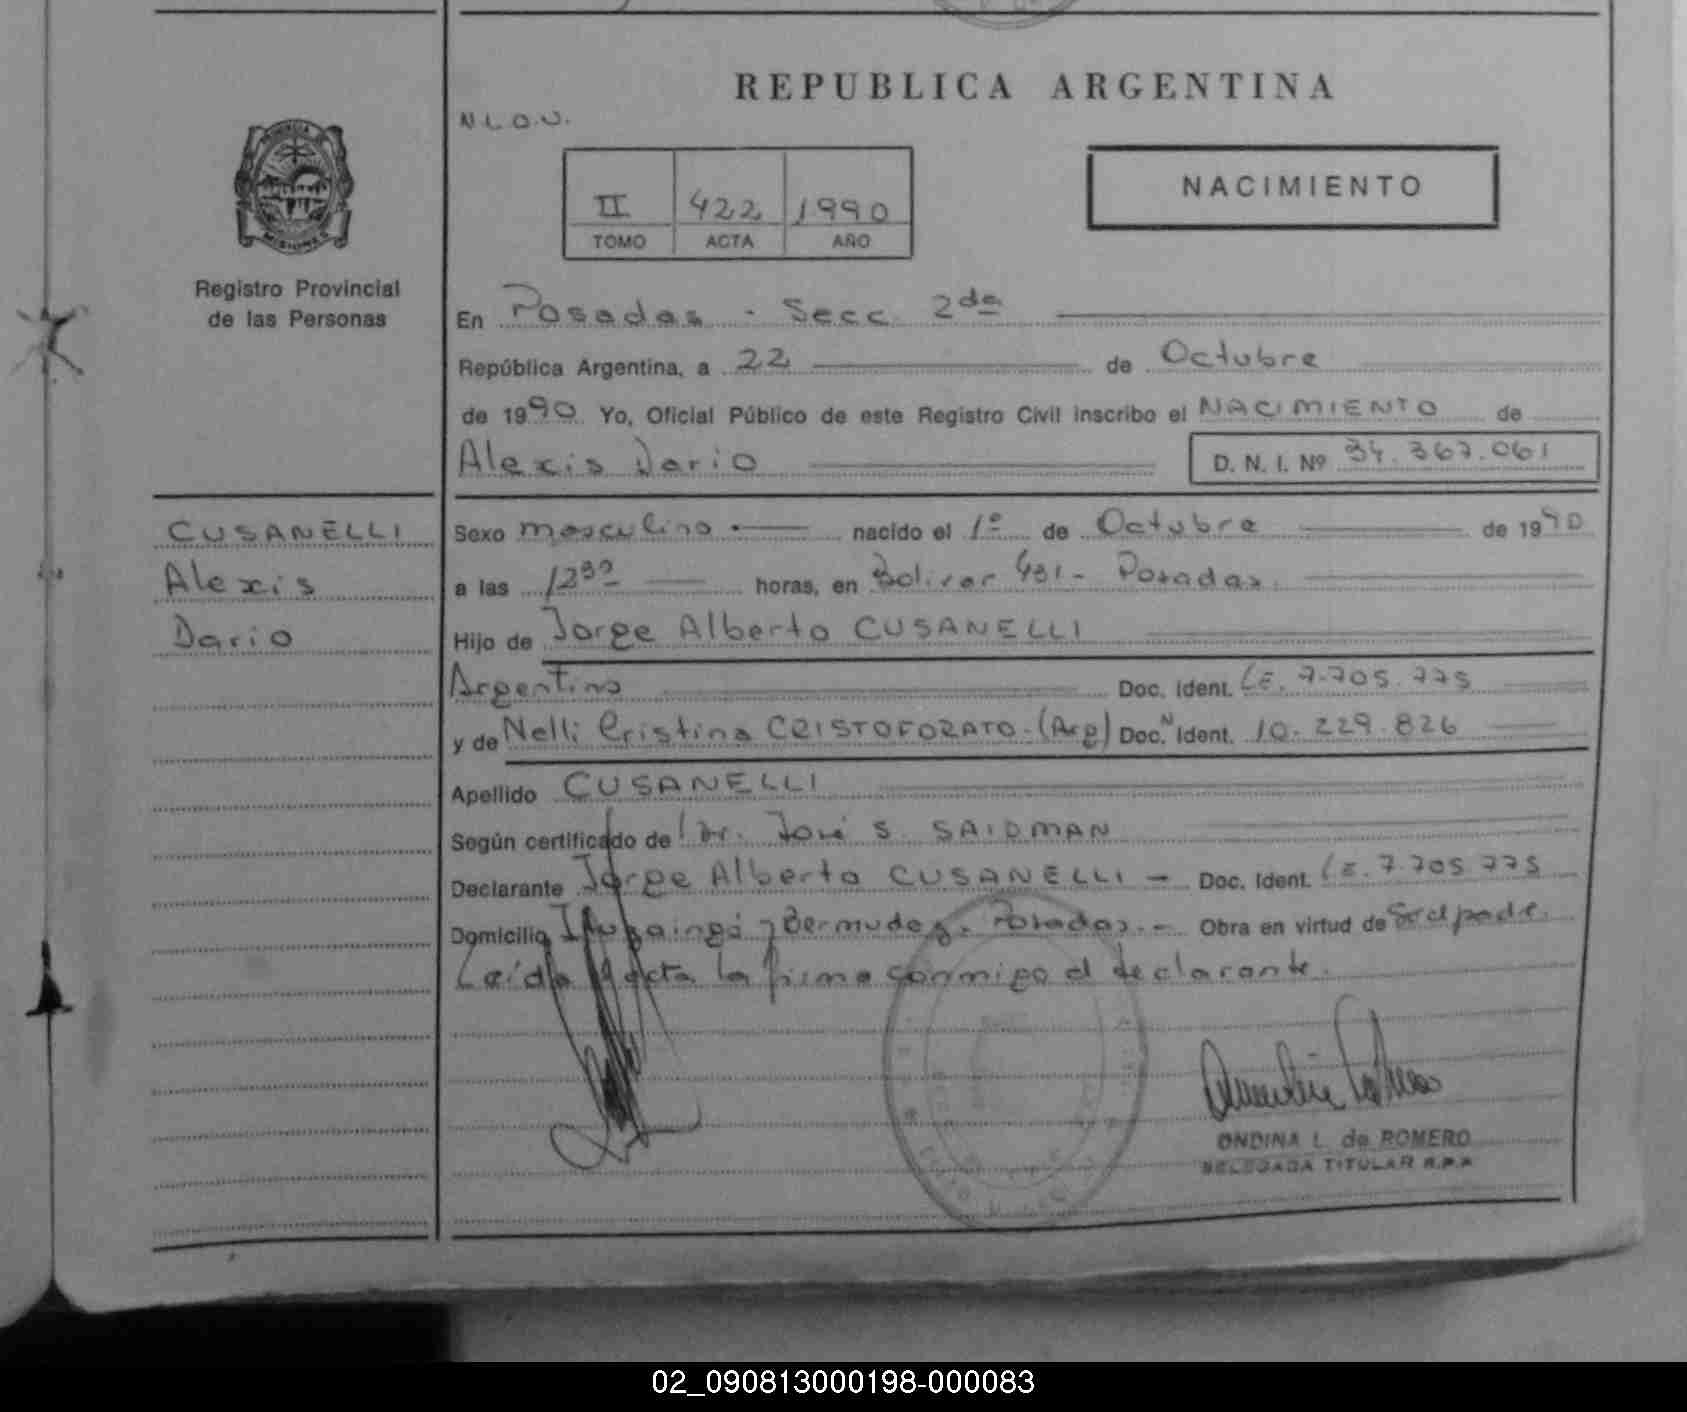 REPUBLICA ARGENTINA
N.L.O.U.
II 422 1990
TOMO ACTA AÑO
NACIMIENTO
PROVINCIA
MISIONES
Registro Provincial
de las Personas
En Posadas - Secc. 2da
República Argentina, a 22 de Octubre
de 1990 Yo, Oficial Público de este Registro Civil inscribo el NACIMIENTO de
Alexis Dario D. N. I. Nº 34.367.061
CUSANELLI
Alexis
Dario
Sexo masculino nacido el 1º de Octubre de 1990
a las 12 30 horas, en Bolivar 431 - Posadas.
Hijo de Jorge Alberto CUSANELLI
Argentino Doc. Ident. LE. 7.705.775
y de Nelli Cristina CRISTOFORATO - (Arg) Doc. N Ident. 10.229.826
Apellido CUSANELLI
Según certificado de Dr. José S. SAIDMAN
Declarante Jorge Alberto CUSANELLI - Doc. Ident. LE. 7.705.775
Domicilio Ituzaingó y Bermudez. Posadas. - Obra en virtud de
Leída el acta la firma conmigo el declarante.
ONDINA L. de ROMERO
DELEGADA TITULAR R.P.P.
02_090813000198-000083